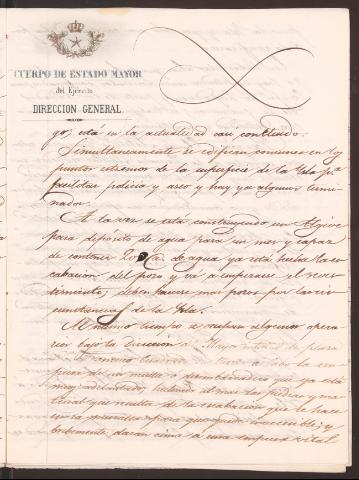 CUERPO DE ESTADO MAYOR
del Ejército
DIRECCION GENERAL.
go, está en la actualidad casi contluido.
Simultaneamente se edifican comunes en los
puntos estremos de la superficie de la Isla pª
facilitar policia y aseo y hay ya algunos termi-
nados.
A la vez se está construyendo un Algive
para depósito de agua para un mes y capaz
de contener de agua ya está hecha la es-
cabacion del pozo y vá á emperarse el reves-
timiento; deben hacerse mas pozos por las cir-
cunstancias de la Isla.
Al mismo tiempo se ocupan algunos opera-
rios bajo la direccion del Mayor de plaza
en la lim-
pieza de un muelle ó desembarcadero que ya está
muy adelantado, echando al mar las piedras y ma-
terial que resulta de la escabacion que se hace
en la muralla para que quede inaccesible; y
brebemente daran cima á una empresa vital